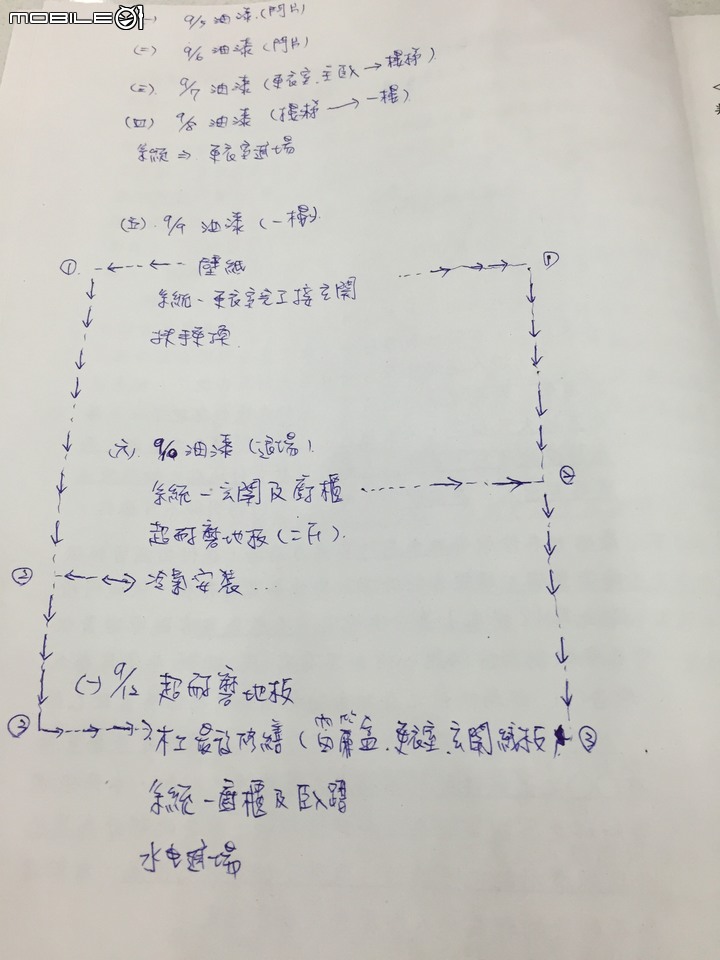 MOBILE01
(一) 9/5 油漆 (門片)
(二) 9/6 油漆 (門片)
(三) 9/7 油漆 (更衣室、主臥 → 樓梯)
(四) 9/8 油漆 (樓梯 → 一樓)
系統 ⇒ 更衣室進場
(五) 9/9 油漆 (一樓)
① 壁紙 ①
系統-更衣室完工接玄關
扶手更換
(六) 9/10 油漆 (退場)
系統-玄關及廚櫃 ②
超耐磨地板 (二F)
② 冷氣安裝...
(一) 9/12 超耐磨地板
③ 木工最後修繕 (窗簾盒、更衣室、玄關線板 ③
系統-廚櫃及臥
水电進場